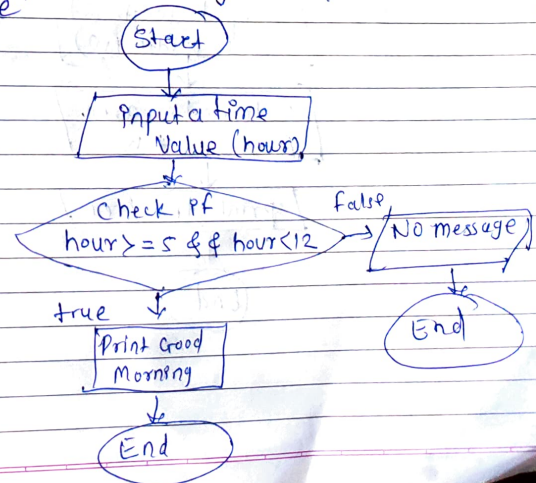 e
Start
input a time
value (hour)
Check if
hour>=5 && hour<12
false
No message
true
End
Print Good
Morning
End